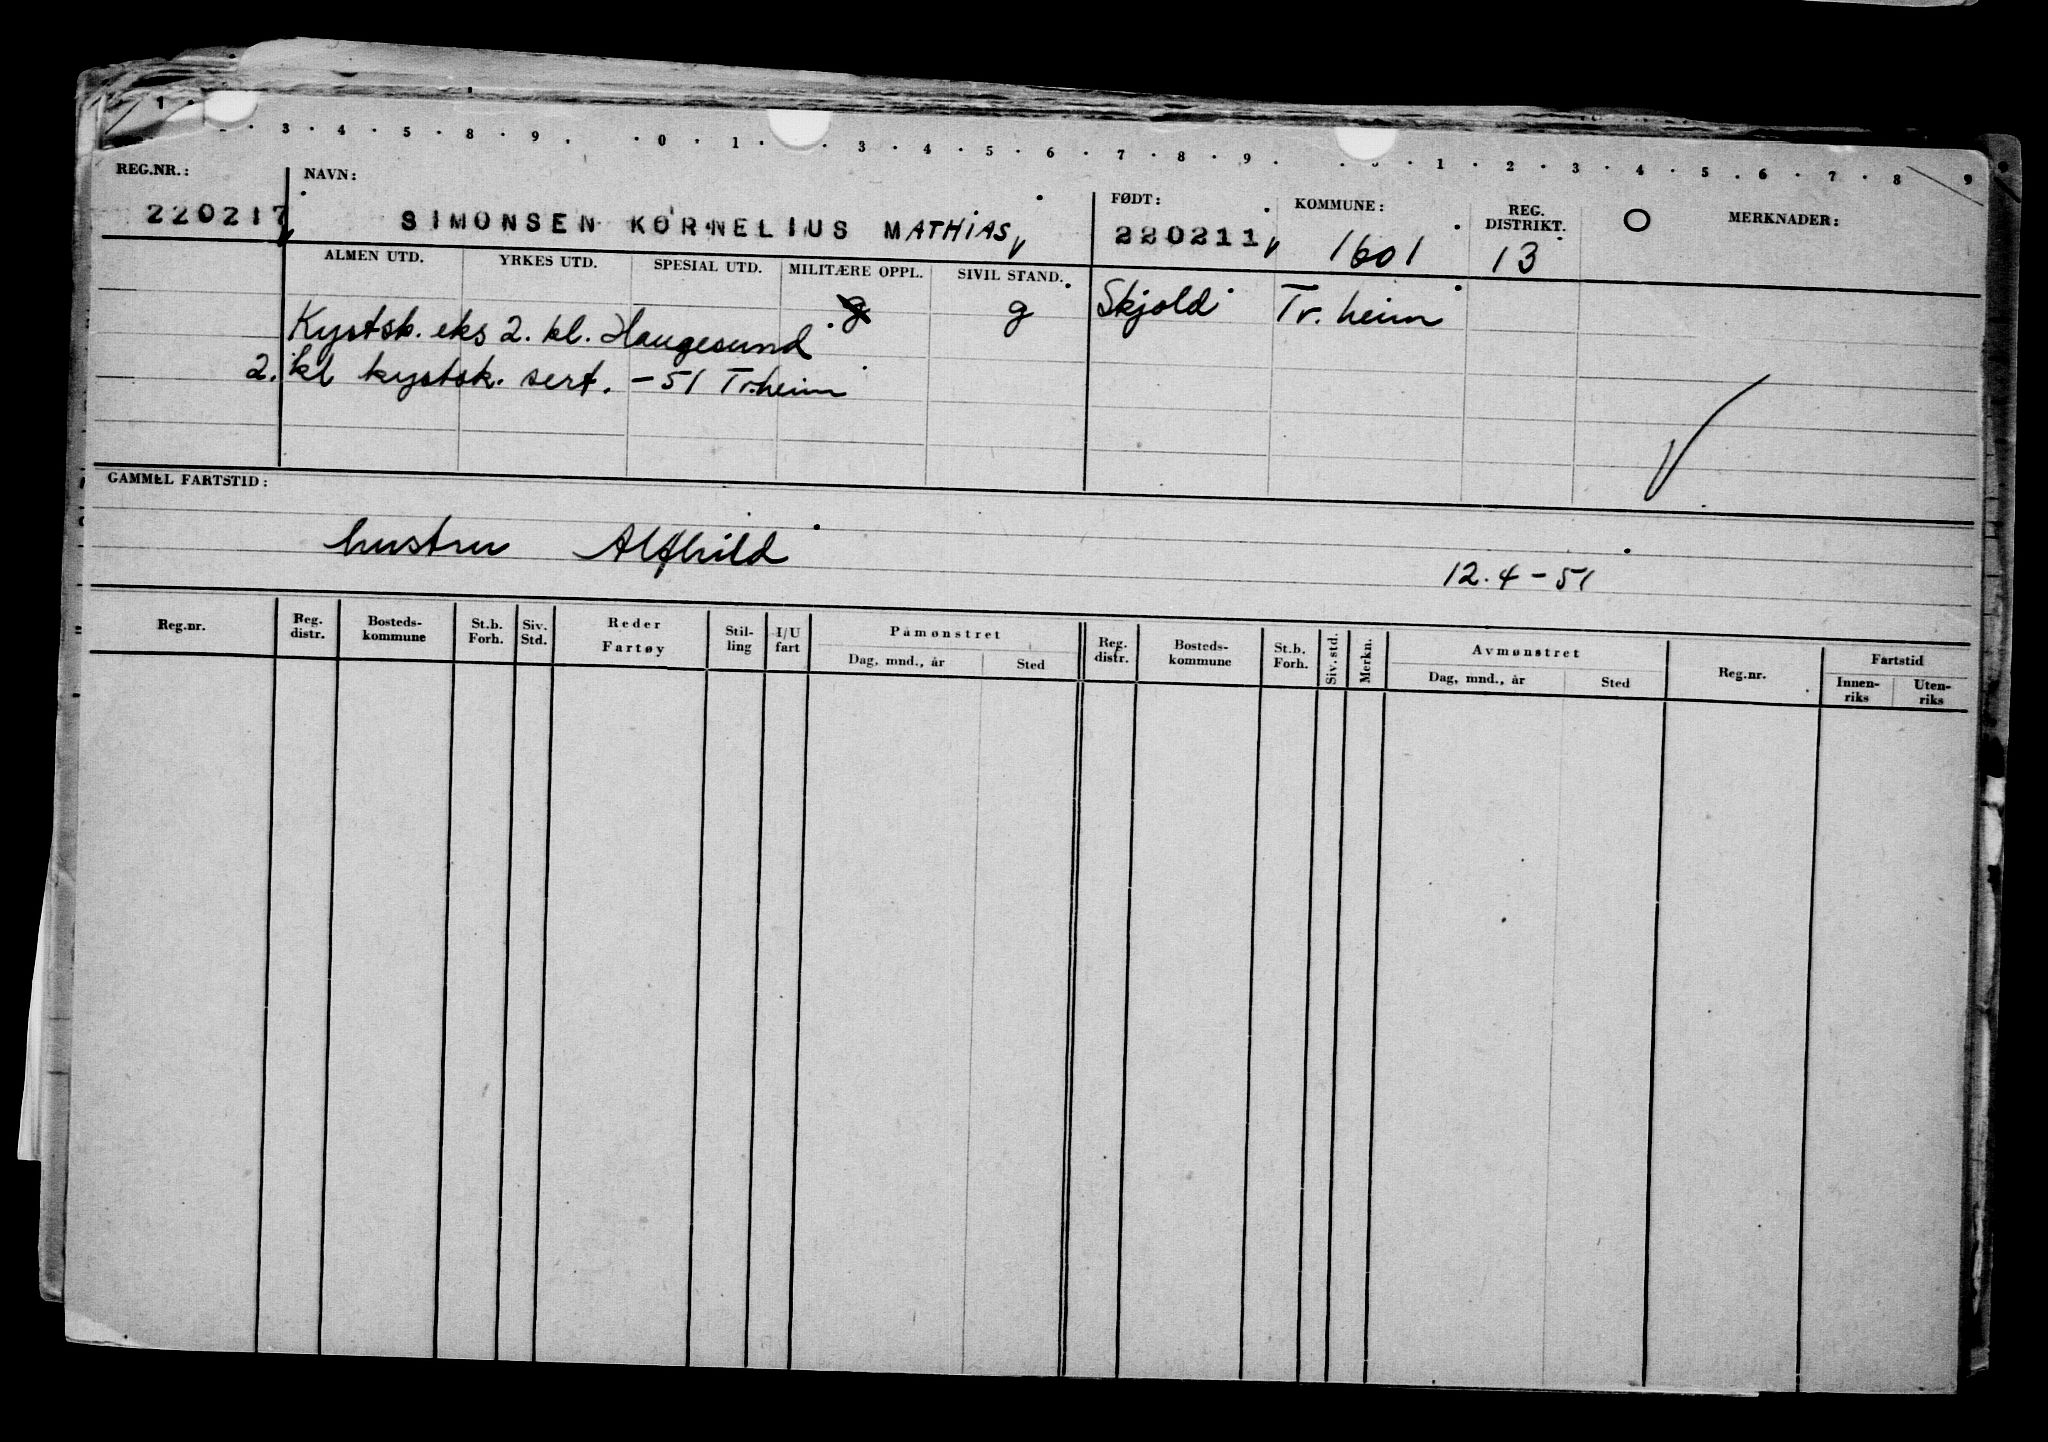 1 . 3 . 4 . 5 . 8 . 9 . . 0 . 1 . . 3 . 4 . 5 . 6 . 7 . 8 . 9 . . 1 . 2 . 3 . 4 . 5 . 6 . 7 . 8 9
REG.NR.: NAVN: FØDT: KOMMUNE: REG. DISTRIKT. MERKNADER:
220217 SIMONSEN KORNELIUS MATHIAS 220211 1601 13 O
ALMEN UTD. YRKES UTD. SPESIAL UTD. MILITÆRE OPPL. SIVIL STAND.
g g Skjold Tr.heim
Kystsk. eks 2. kl. Haugesund
2. kl kystsk. sert. -51 Tr.heim
GAMMEL FARTSTID:
hustru Alfhild 12.4-51
Reg.nr. Reg. distr. Bosteds- kommune St.b. Forh. Siv. Std. Reder Fartøy Stil- ling I/U fart Påmønstret Reg. distr. Bosteds- kommune St.b. Forh. Siv. std. Merkn. Avmønstret Reg.nr. Fartstid
Dag, mnd., år Sted Dag, mnd., år Sted Innen- riks Uten- riks